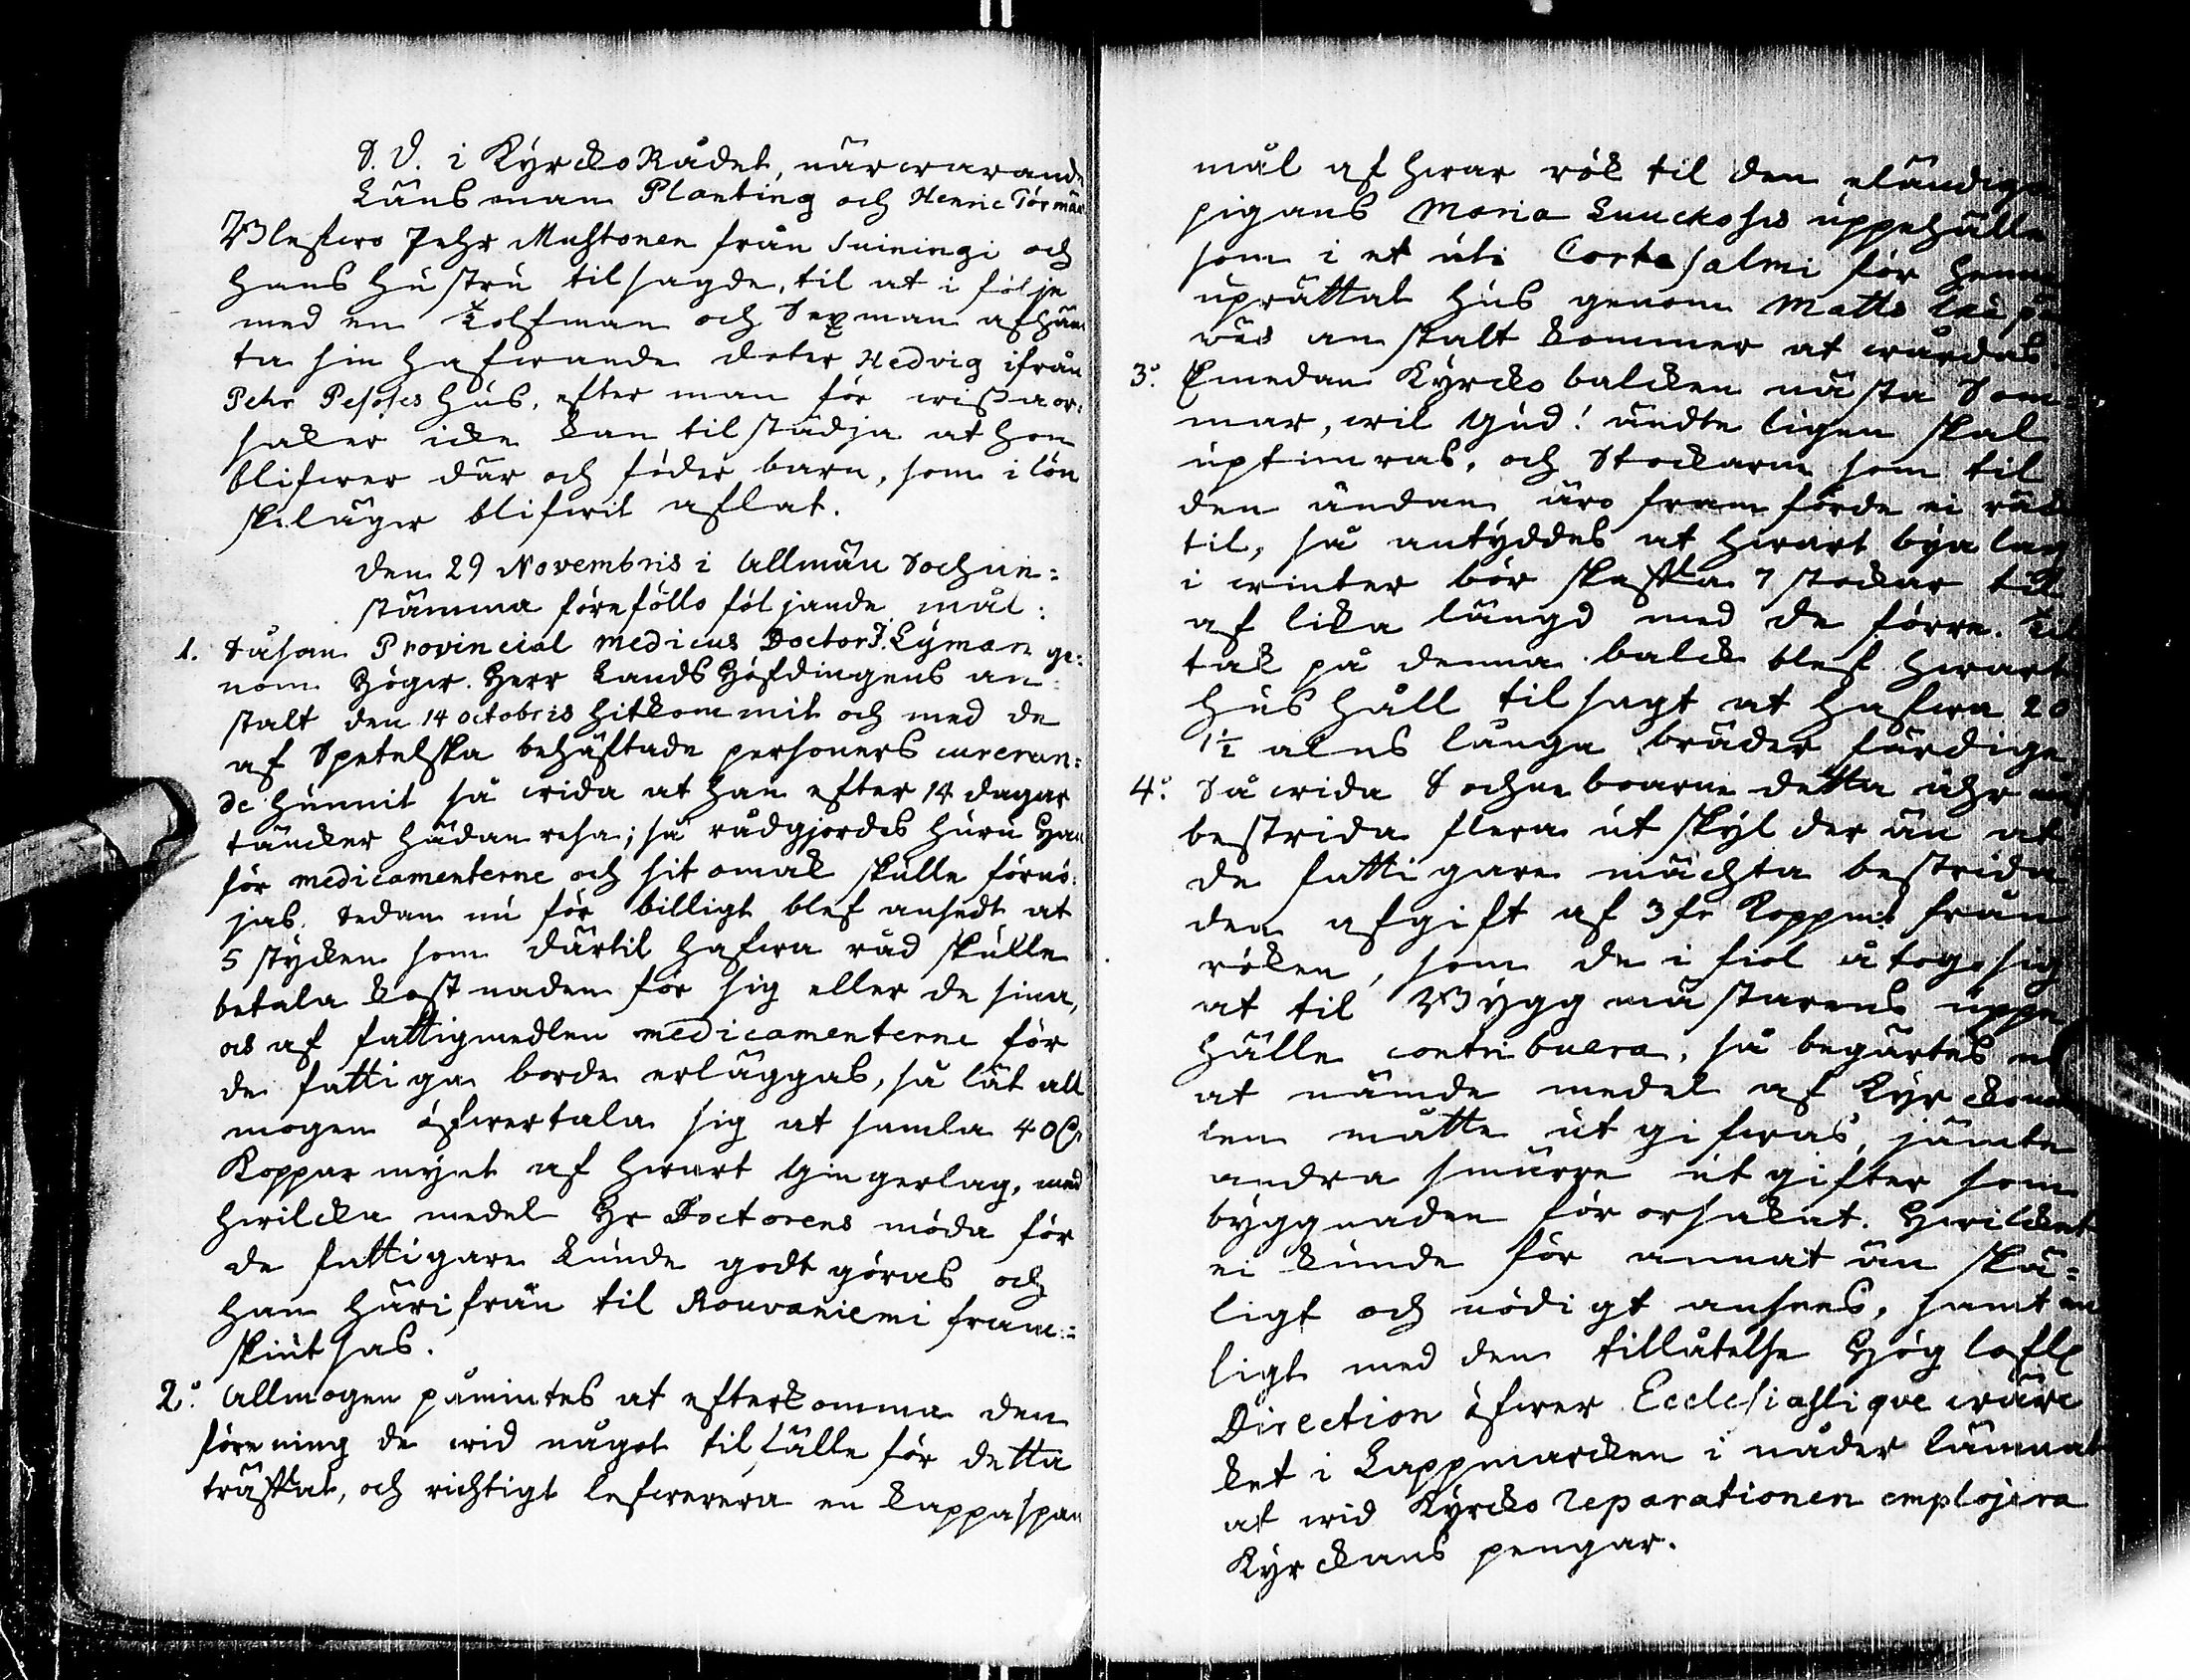 S. D. i KyrckoRådet, närwarande
Länsman Planting och Henric Törmän
Blefwo Pehr Mustonen från Suiningi och
hans hustru tilsagde, til at i följe
med en Tolfman och Sexman afhäm
ta sin hafwande doter Hedvig ifrån
Pehr Pesoses hus, efter man för wissa or:
saker icke kan tilstädja at hon
blifwer där och föder barn, som i lön
skeläger blifwit aflat.
den 29 Novembris i Allmän Sochne:
stämma föreföllo följande mål:
1. Såsom Provincial Medicus Doctor J. Lyman ge:
nom Högw. Herr LandsHöfdingens an:
stalt den 14 octobris hitkommit och med de
af Spetelska behäftade personers cureran:
de hunnit så wida at han efter 14 dagar
täncker hädan resa; så rådgjordes huru Han
för medicamenterne och sit omak skulle förnö:
jas. Sedan nu för billigt blef ansedt at
5 stycken som därtil hafwa råd skulle
betala kostnaden för sig eller de sina,
os af fattigmedlen medicamenterne för
de fattiga borde erläggas, så lät all
mogen öfwertala sig at samla 40
Koppar mynt af hwart Gingerlag, med
hwilcka medel Hr Doctorens möda för
de fattigare kunde godtgöras och
han härifrån til Rouvaniemi fram:
skiutsas.
2:o Allmogen påmintes at efterkomma den
förening de wid något tilfälle för detta
träffat, och richtigt lefwerera en kappa span
mål af hwar rök til den eländiga
pigans Maria Luuckoses uppehälle
som i et uti Cortesalmi för henne
uprättat hus genom Matts
anstalt kommer at wårdas.
3:o Emedan Kyrcko balcken nästa Som:
mar, wil Gud! ändteligen skal
uptimras, och Stockarne som til
den ändan äro framförde ei räc
til, så antyddes at hwart byalag
i winter bör skaffa 7 stockar til
af lika längd med de förre. Til
tak på denna balck blef hwart
hushåll tilsagt at hafwa 20
1½ alns långa bräder färdige
4:o Så wida Sochneboarne detta åhr
bestrida flera utskylder än at
de fattigare mächta bestrida
den afgift af 3 Koppmt från
röken, som de i fiol åtogo sig
at til Byggmästarens uppe
hälle contribuera, så begärtes
at nämde medel af Kyrckones
måtte utgifwas, jämte
andra smärre utgifter som
byggnaden förorsakat. Hwilcket
ei kunde för annat än skä:
ligt och nödigt anses, samt en
ligt med den tillåtelse Höglofl
Direction öfwer Ecclesiastique wäre
ket i Lappmarcken i nåder lämnat
at wid Kyrcko reparationen emplojera
Kyrckans pengar.